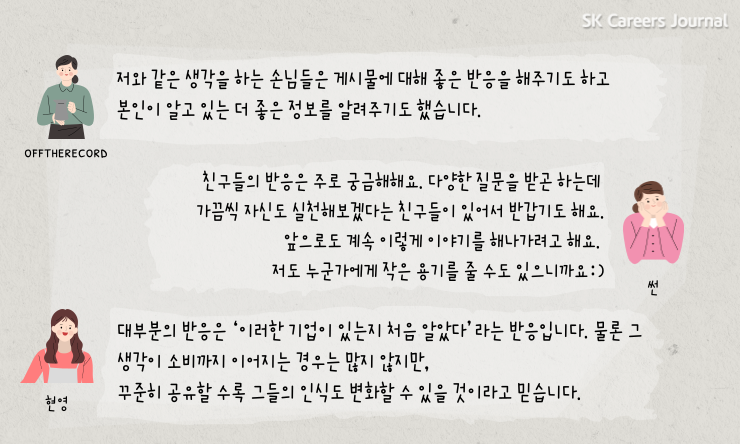 SK Careers Journal
저와 같은 생각을 하는 손님들은 게시물에 대해 좋은 반응을 해주기도 하고
본인이 알고 있는 더 좋은 정보를 알려주기도 했습니다.
OFFTHERECORD
친구들의 반응은 주로 궁금해해요. 다양한 질문을 받곤 하는데
가끔씩 자신도 실천해보겠다는 친구들이 있어서 반갑기도 해요.
앞으로도 계속 이렇게 이야기를 해나가려고 해요.
저도 누군가에게 작은 용기를 줄 수도 있으니까요:)
썬
대부분의 반응은 ‘이러한 기업이 있는지 처음 알았다’라는 반응입니다. 물론 그
생각이 소비까지 이어지는 경우는 많지 않지만,
꾸준히 공유할 수록 그들의 인식도 변화할 수 있을 것이라고 믿습니다.
현영